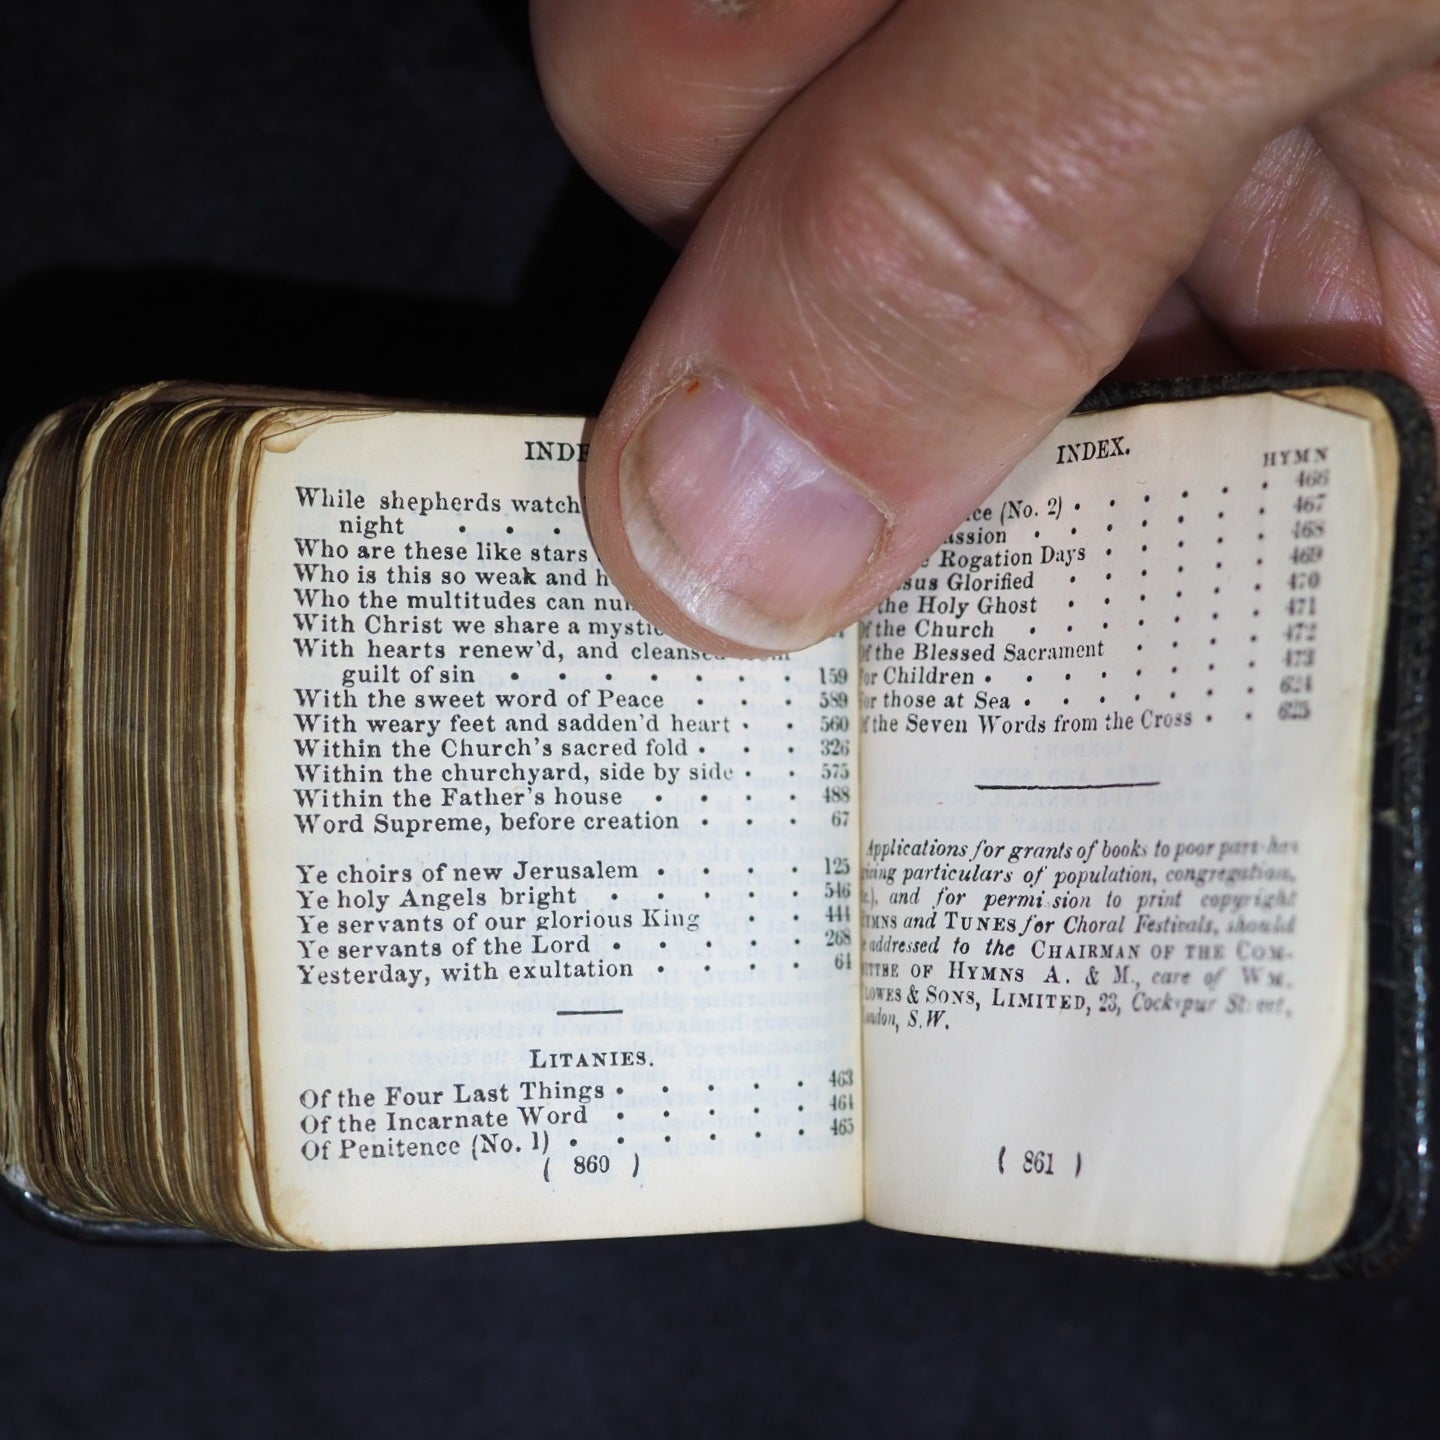 INDE
While shepherds watch
night
Who are these like stars
Who is this so weak and h
Who the multitudes can nu
With Christ we share a mystic
With hearts renew'd, and cleansed from
guilt of sin 159
With the sweet word of Peace 589
With weary feet and sadden'd heart 560
Within the Church's sacred fold 326
Within the churchyard, side by side 575
Within the Father's house 488
Word Supreme, before creation 67
Ye choirs of new Jerusalem 125
Ye holy Angels bright 546
Ye servants of our glorious King 444
Ye servants of the Lord 268
Yesterday, with exultation 64
LITANIES.
Of the Four Last Things 463
Of the Incarnate Word 464
Of Penitence (No. 1) 465
( 860 )
INDEX.
HYMN
466
ce (No. 2) 467
ssion 468
Rogation Days 469
sus Glorified 470
the Holy Ghost 471
f the Church 472
f the Blessed Sacrament 473
or Children 624
or those at Sea 625
f the Seven Words from the Cross
Applications for grants of books to poor parishes
particulars of population, congregation,
and for permission to print copyright
HYMNS and TUNES for Choral Festivals, should
addressed to the CHAIRMAN OF THE COM-
TTEE OF HYMNS A. & M., care of WM.
LOWES & SONS, LIMITED, 23, Cockspur Street,
London, S.W.
( 861 )